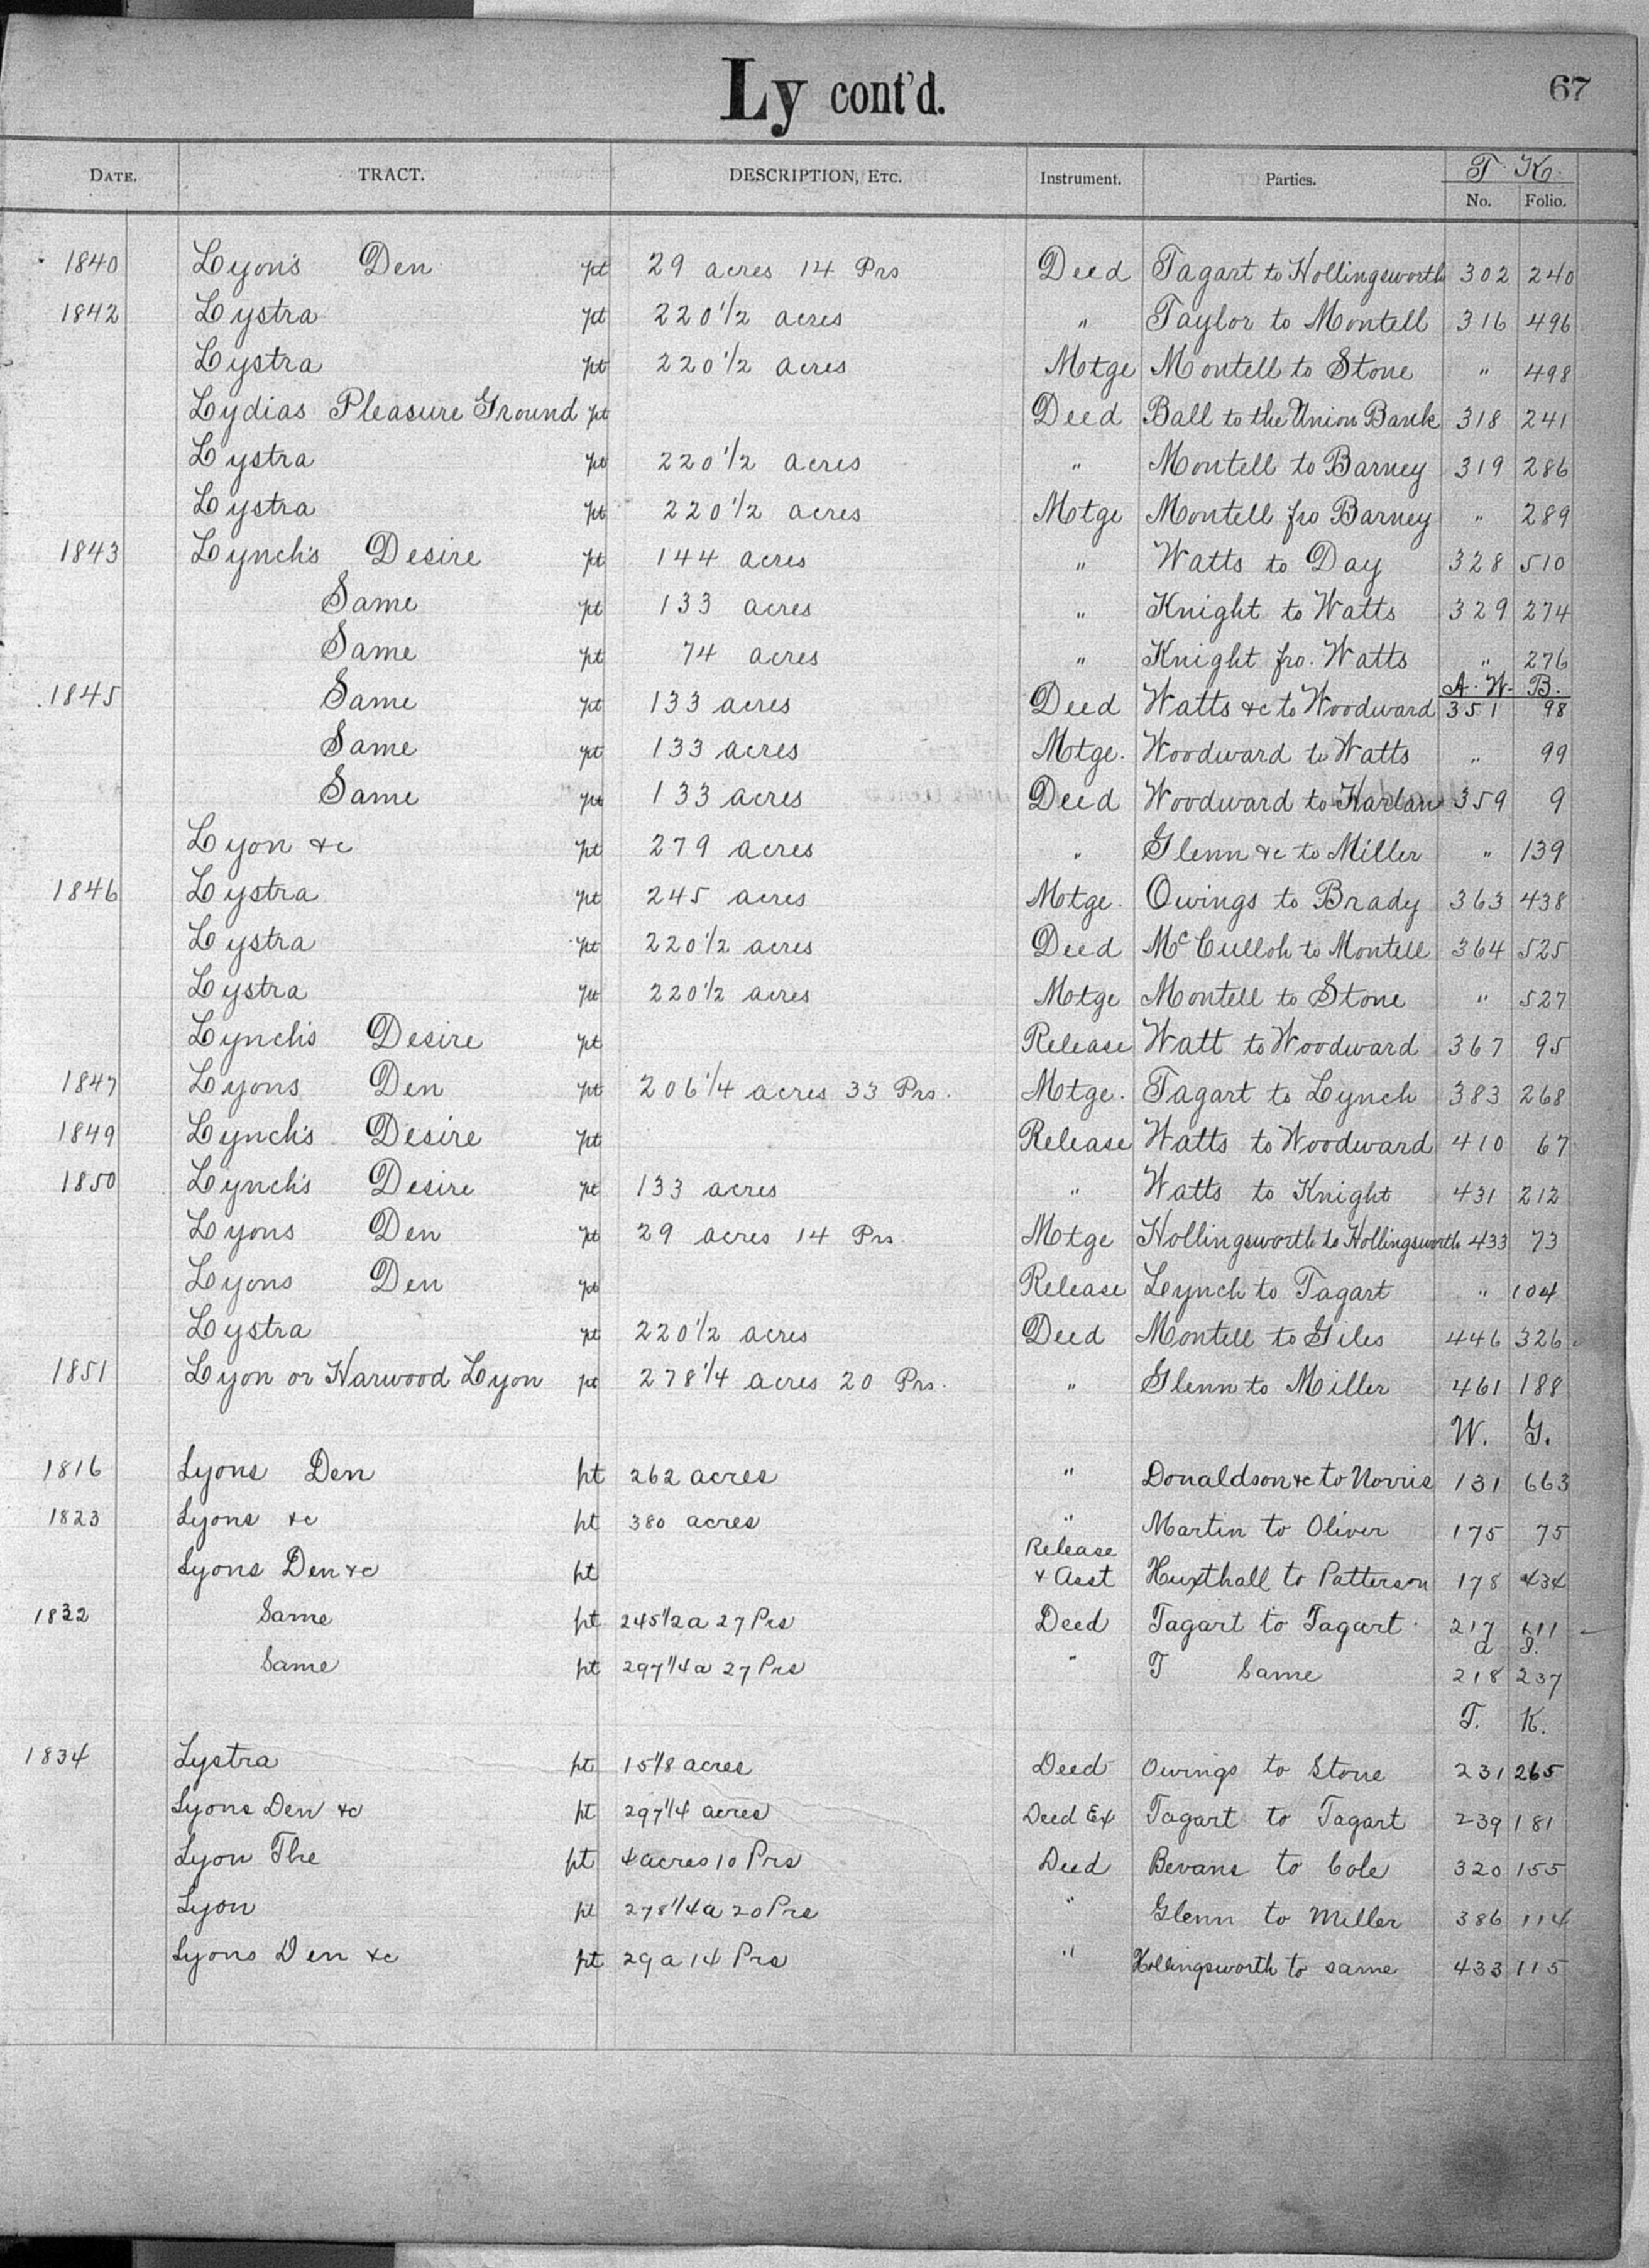 Ly cont'd.
67
DATE. TRACT. DESCRIPTION, ETC. Instrument. Parties. T. K. No. Folio.
1840 Lyon's Den pt 29 acres 14 Prs Deed Tagart to Hollingsworth 302 240
1842 Lystra pt 220 1/2 acres " Taylor to Montell 316 496
Lystra pt 220 1/2 acres Motge Montell to Stone " 498
Lydias Pleasure Ground pt Deed Ball to the Union Bank 318 241
Lystra pt 220 1/2 acres " Montell to Barney 319 286
Lystra pt 220 1/2 acres Motge Montell fro Barney " 289
1843 Lynch's Desire pt 144 acres " Watts to Day 328 510
Same pt 133 acres " Knight to Watts 329 274
Same pt 74 acres " Knight fro. Watts " 276
A. W. B.
1845 Same pt 133 acres Deed Watts &c to Woodward 351 98
Same pt 133 acres Motge. Woodward to Watts " 99
Same pt 133 acres Deed Woodward to Harlan 359 9
Lyon &c pt 279 acres " Glenn &c to Miller " 139
1846 Lystra pt 245 acres Motge. Owings to Brady 363 438
Lystra pt 220 1/2 acres Deed McCulloh to Montell 364 525
Lystra pt 220 1/2 acres Motge Montell to Stone " 527
Lynch's Desire pt Release Watt to Woodward 367 95
1847 Lyons Den pt 206 1/4 acres 33 Prs. Motge. Tagart to Lynch 383 268
1849 Lynch's Desire pt Release Watts to Woodward 410 67
1850 Lynch's Desire pt 133 acres " Watts to Knight 431 212
Lyons Den pt 29 acres 14 Prs. Motge Hollingsworth to Hollingsworth 433 73
Lyons Den pt Release Lynch to Tagart " 104
Lystra pt 220 1/2 acres Deed Montell to Giles 446 326
1851 Lyon or Harwood Lyon pt 278 1/4 acres 20 Prs. " Glenn to Miller 461 188
W. G.
1816 Lyons Den pt 262 acres " Donaldson &c to Norris 131 663
1823 Lyons &c pt 380 acres " Martin to Oliver 175 75
Lyons Den &c pt Release & Asst Huxthall to Patterson 178 434
1832 Same pt 245 1/2 a 27 Prs Deed Tagart to Tagart 217 611
a
Same pt 297 1/4 a 27 Prs " T Same 218 237
T. K.
1834 Lystra pt 15 1/8 acres Deed Owings to Stone 231 265
Lyons Den &c pt 297 1/4 acres Deed Ex Tagart to Tagart 239 181
Lyon The pt 4 acres 10 Prs Deed Bevans to Cole 320 155
Lyon pt 278 1/4 a 20 Prs " Glenn to Miller 386 114
Lyons Den &c pt 29 a 14 Prs " Hollingsworth to same 433 115